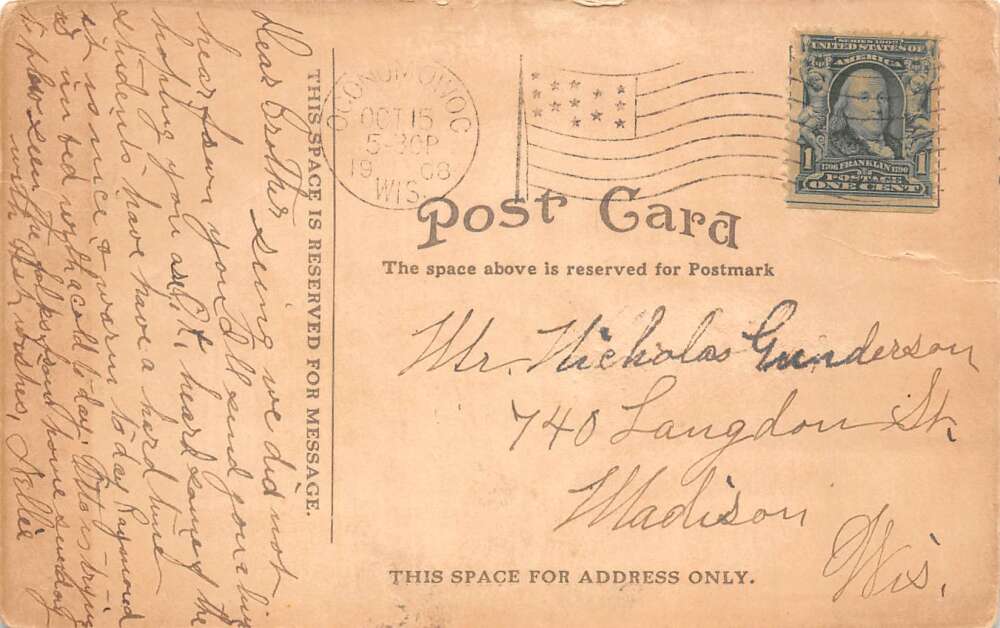 Dear Brother
seing we did not
hear from you I'll send you a line
hoping you are O.K, heard some of the
students have have a hard time
it is nice & warm today Raymond
is in bed with a cold to day. Otto is trying
it now seen the folks from home sunday
with best wishes, Nellie
THIS SPACE IS RESERVED FOR MESSAGE.
OCONOMOWOC
OCT 15
5-30P
1908
WIS.
SERIES 1902
UNITED STATES OF
AMERICA
1 1706 FRANKLIN 1790 1
POSTAGE
ONE CENT
Post Card
The space above is reserved for Postmark
Mr. Nicholas Gunderson
740 Langdon St.
Madison
Wis.
THIS SPACE FOR ADDRESS ONLY.